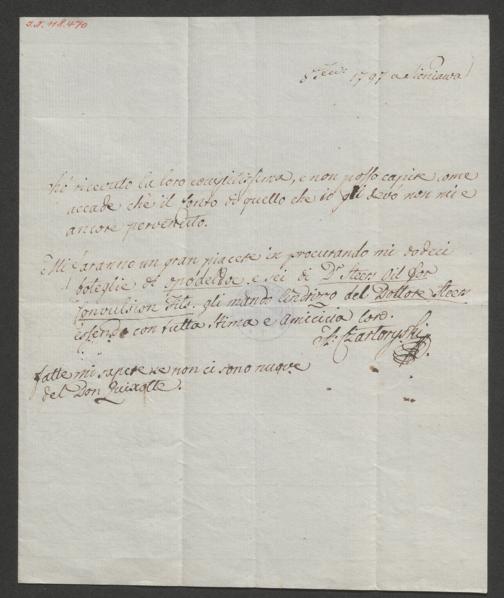 I.N. 48.470
1797 a Sieniawa
hò ricevuto la loro compitissima, e non posso capire come
accade che il Conto di quello che io gli devo non mi è
ancore pervenuto.
Mi faranno un gran piacere in procurando mi dodeci
boteglie di opodeldoc e sei di Dr Steers Oil for
Convulsion Fits. gli mando l'indirizzo del Dottore Steers
essendo con tutta stima e amicizia loro.
A: Czartoryski
fatte mi sapere se non ci sono nuove
del Don Quixotte.